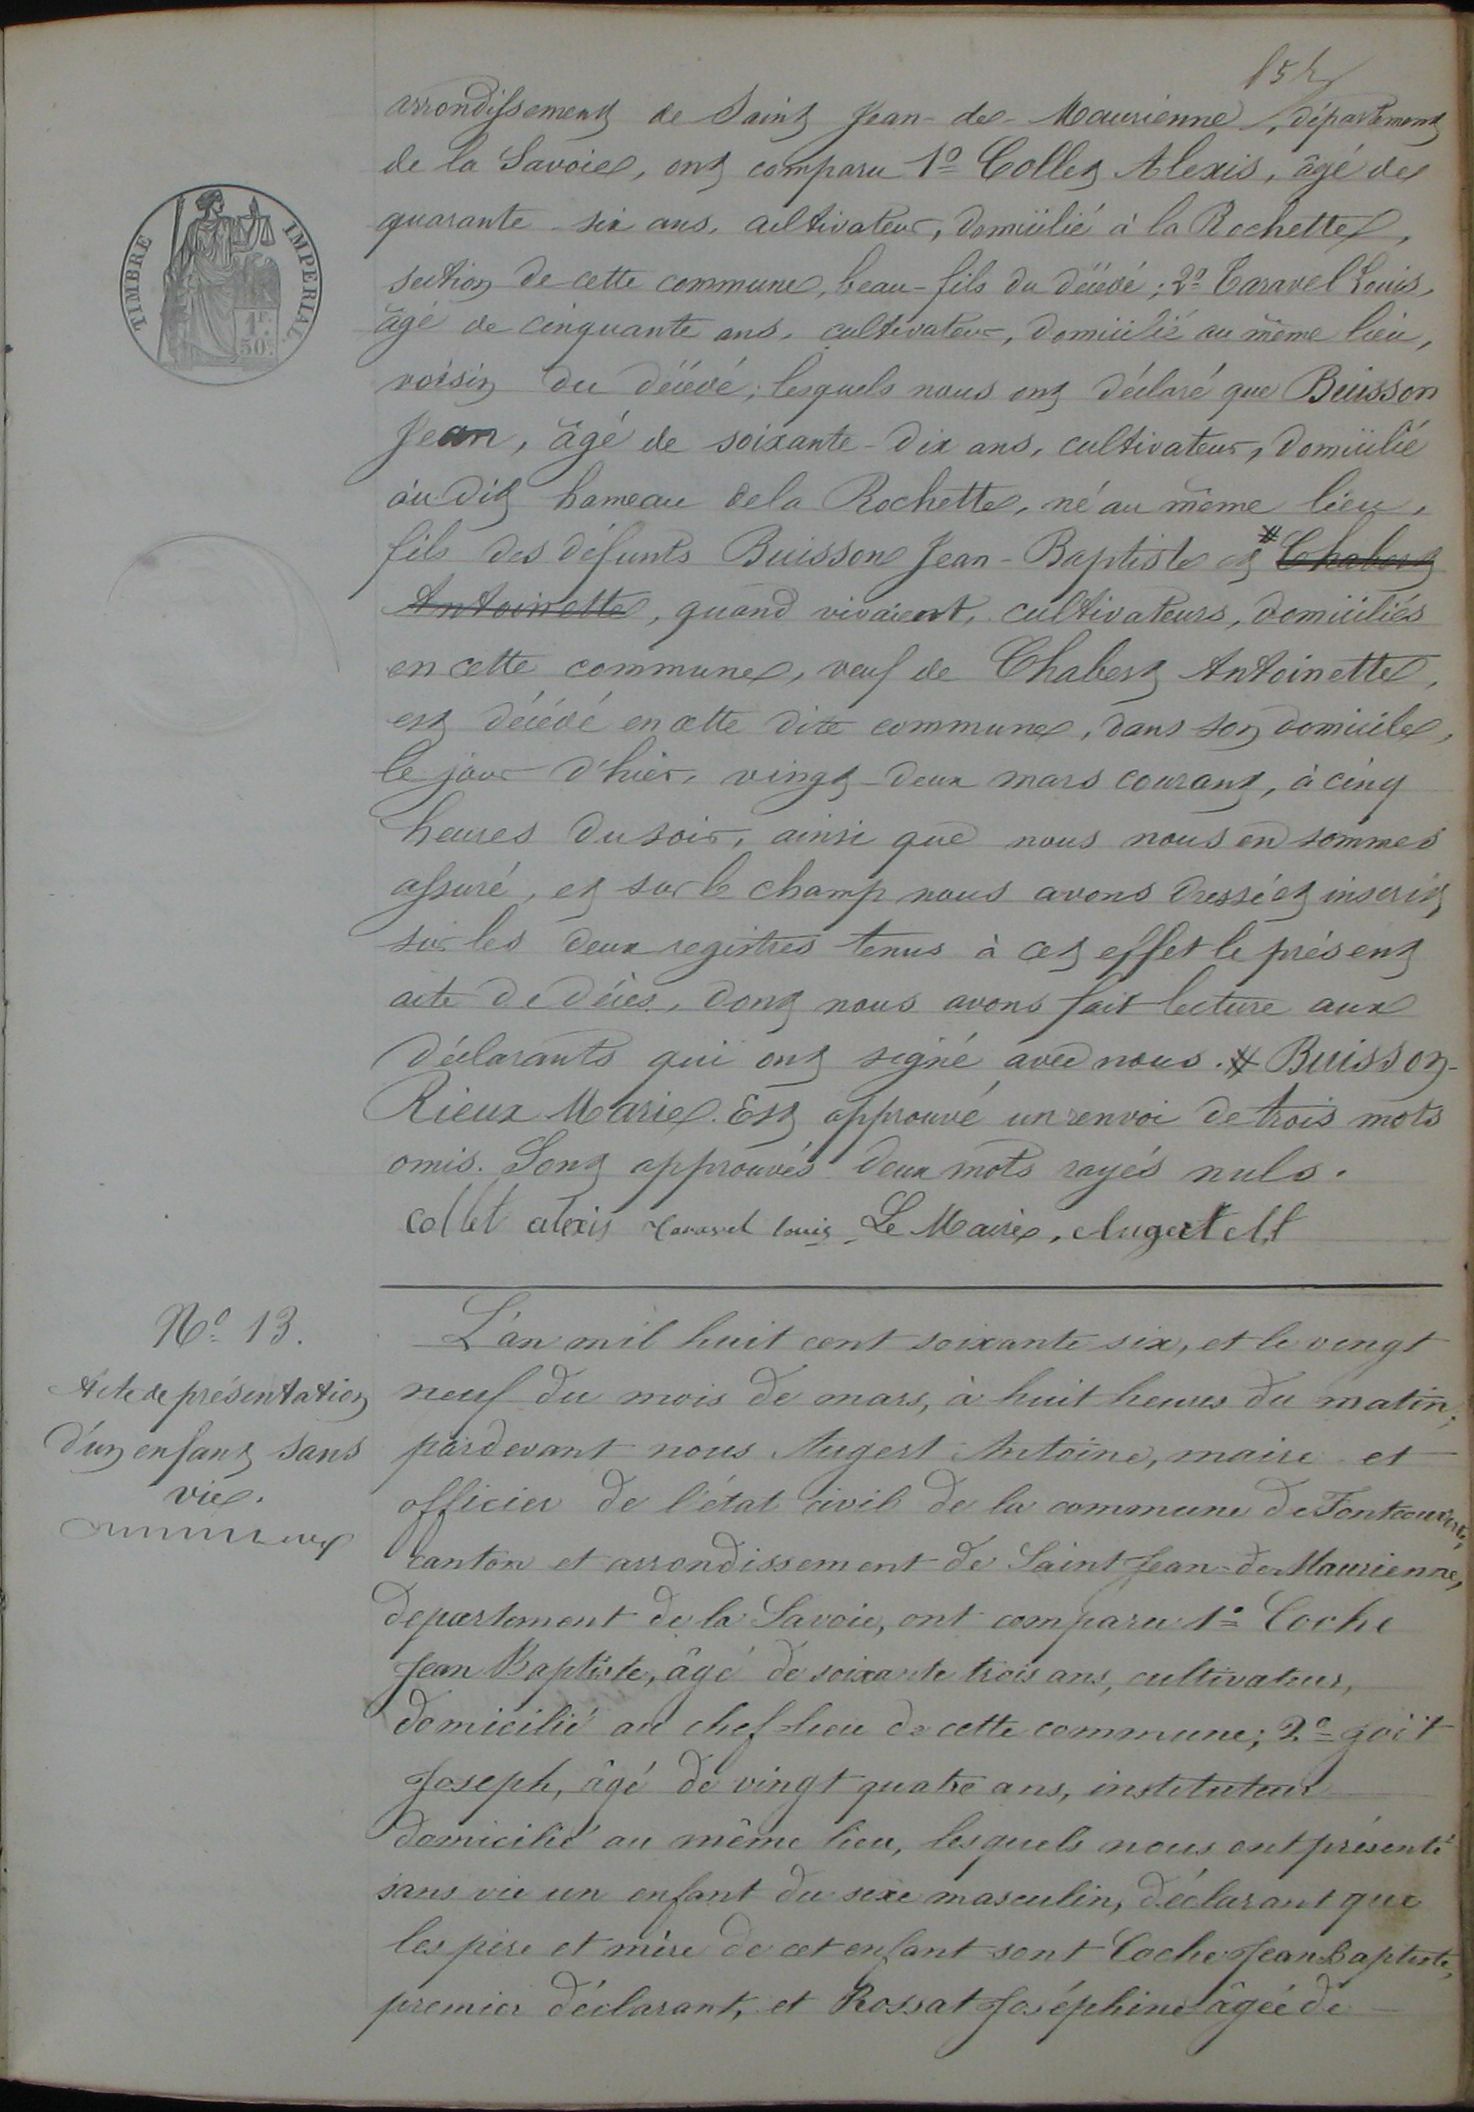 arrondissement de Saint Jean-de-Maurienne, département
de la Savoie, ont comparu 1º Collet Alexis, âgé de
quarante-six ans, cultivateur, domicilié à la Rochette,
section de cette commune, beau-fils du décédé; 2º Taravel Louis,
âgé de cinquante ans, cultivateur, domicilié au même lieu,
voisin du décédé; lesquels nous ont déclaré que Buisson
Jean, âgé de soixante-dix ans, cultivateur, domicilié
au dit hameau de la Rochette, né au même lieu,
fils des défunts Buisson Jean-Baptiste et # Chabert
Antoinette, quand vivaient, cultivateurs, domiciliés
en cette commune, veuf de Chabert Antoinette,
est décédé en cette dite commune, dans son domicile,
le jour d'hier, vingt-deux mars courant, à cinq
heures du soir, ainsi que nous nous en sommes
assuré, et sur le champ nous avons dressé et inscrit
sur les deux registres tenus à cet effet le présent
acte de décès, dont nous avons fait lecture aux
déclarants qui ont signé avec nous. # Buisson-
Rieux Marie. Est approuvé un renvoi de trois mots
omis. Sont approuvés deux mots rayés nuls.
collet alexis taravel louis Le Maire, Augert
TIMBRE IMPERIAL
1F.
50C.
Nº 13.
Acte de présentation
d'un enfant sans
vie.
L'an mil huit cent soixante six, et le vingt
neuf du mois de mars, à huit heures du matin,
pardevant nous Augert Antoine, maire et
officier de l'état civil de la commune de Fontcouverte,
canton et arrondissement de Saint Jean-de-Maurienne,
departement de la Savoie, ont comparu 1º Coche
Jean Baptiste, âgé de soixante trois ans, cultivateur,
domicilié au chef-lieu de cette commune; 2º
Joseph, âgé de vingt quatre ans, instituteur
domicilié au même lieu, lesquels nous ont présenté
sans vie un enfant du sexe masculin, déclarant que
les père et mère de cet enfant sont Coche Jean Baptiste,
premier déclarant, et Rossat Joséphine âgée de